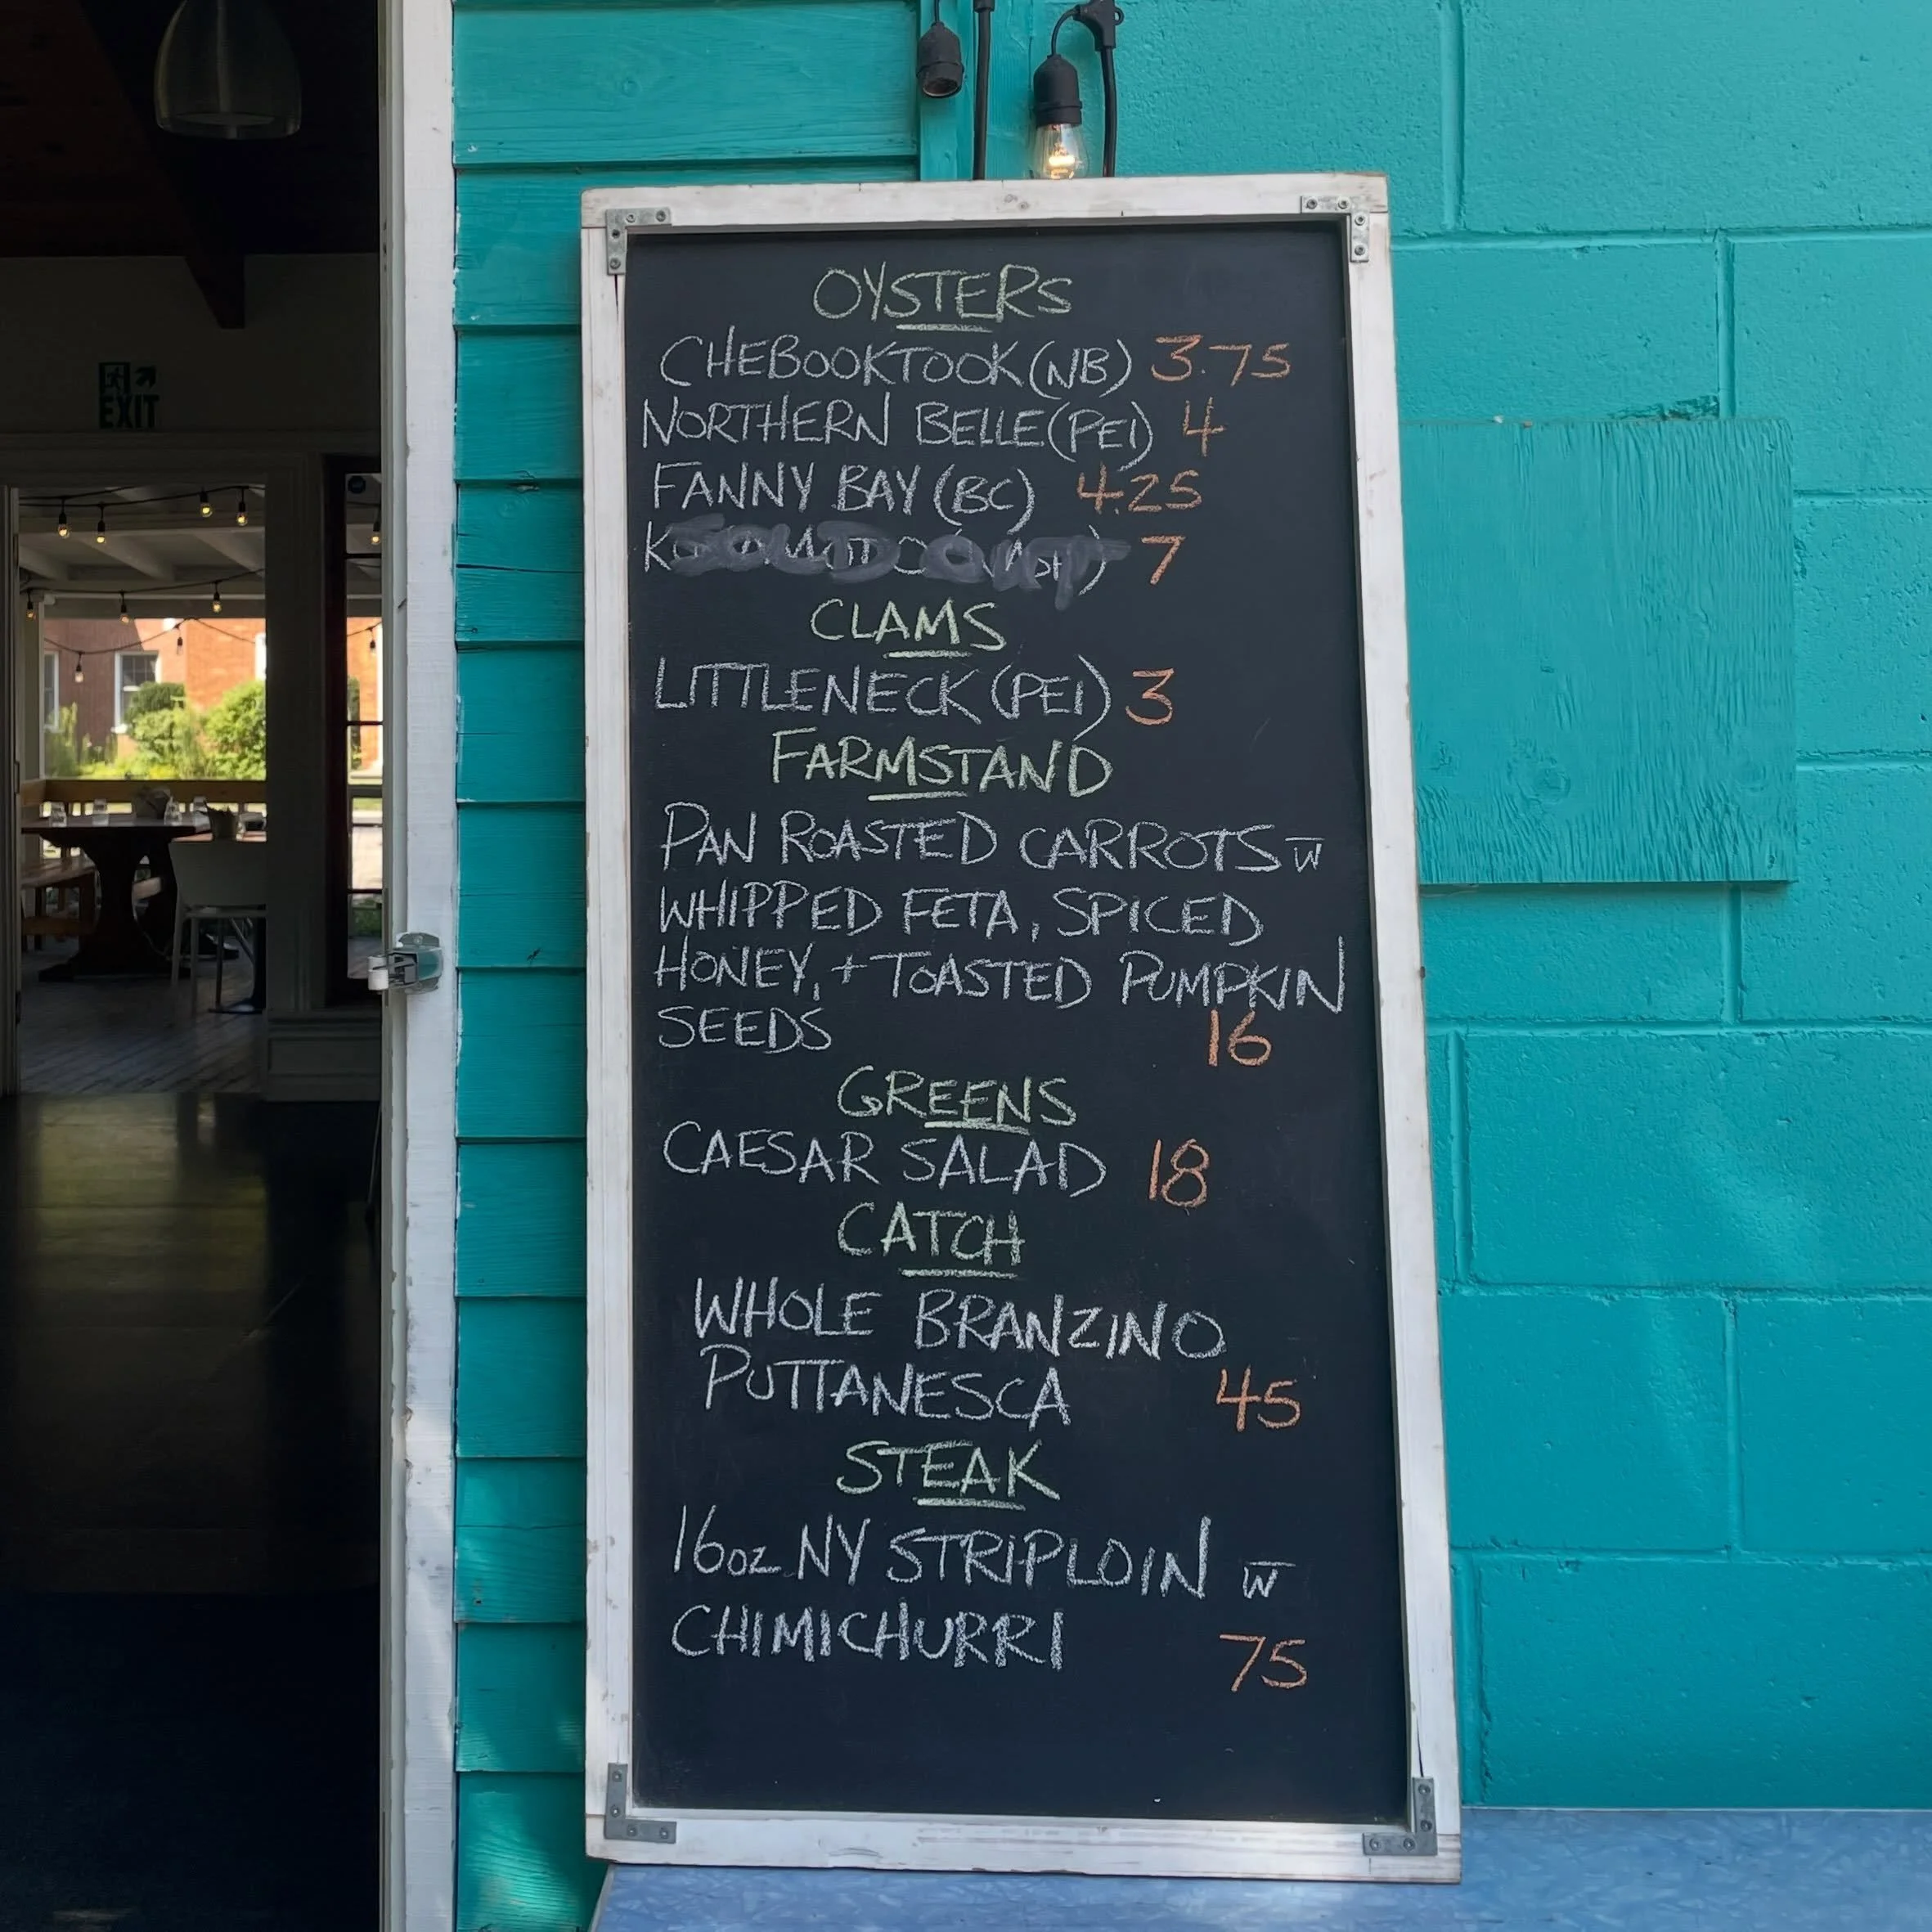 EXIT
OYSTERS
CHEBOOKTOOK (NB) 3.75
NORTHERN BELLE (PEI) 4
FANNY BAY (BC) 4.25
7
CLAMS
LITTLENECK (PEI) 3
FARMSTAND
PAN ROASTED CARROTS w̅
WHIPPED FETA, SPICED
HONEY, + TOASTED PUMPKIN
SEEDS 16
GREENS
CAESAR SALAD 18
CATCH
WHOLE BRANZINO
PUTTANESCA 45
STEAK
16oz NY STRIPLOIN w̅
CHIMICHURRI 75